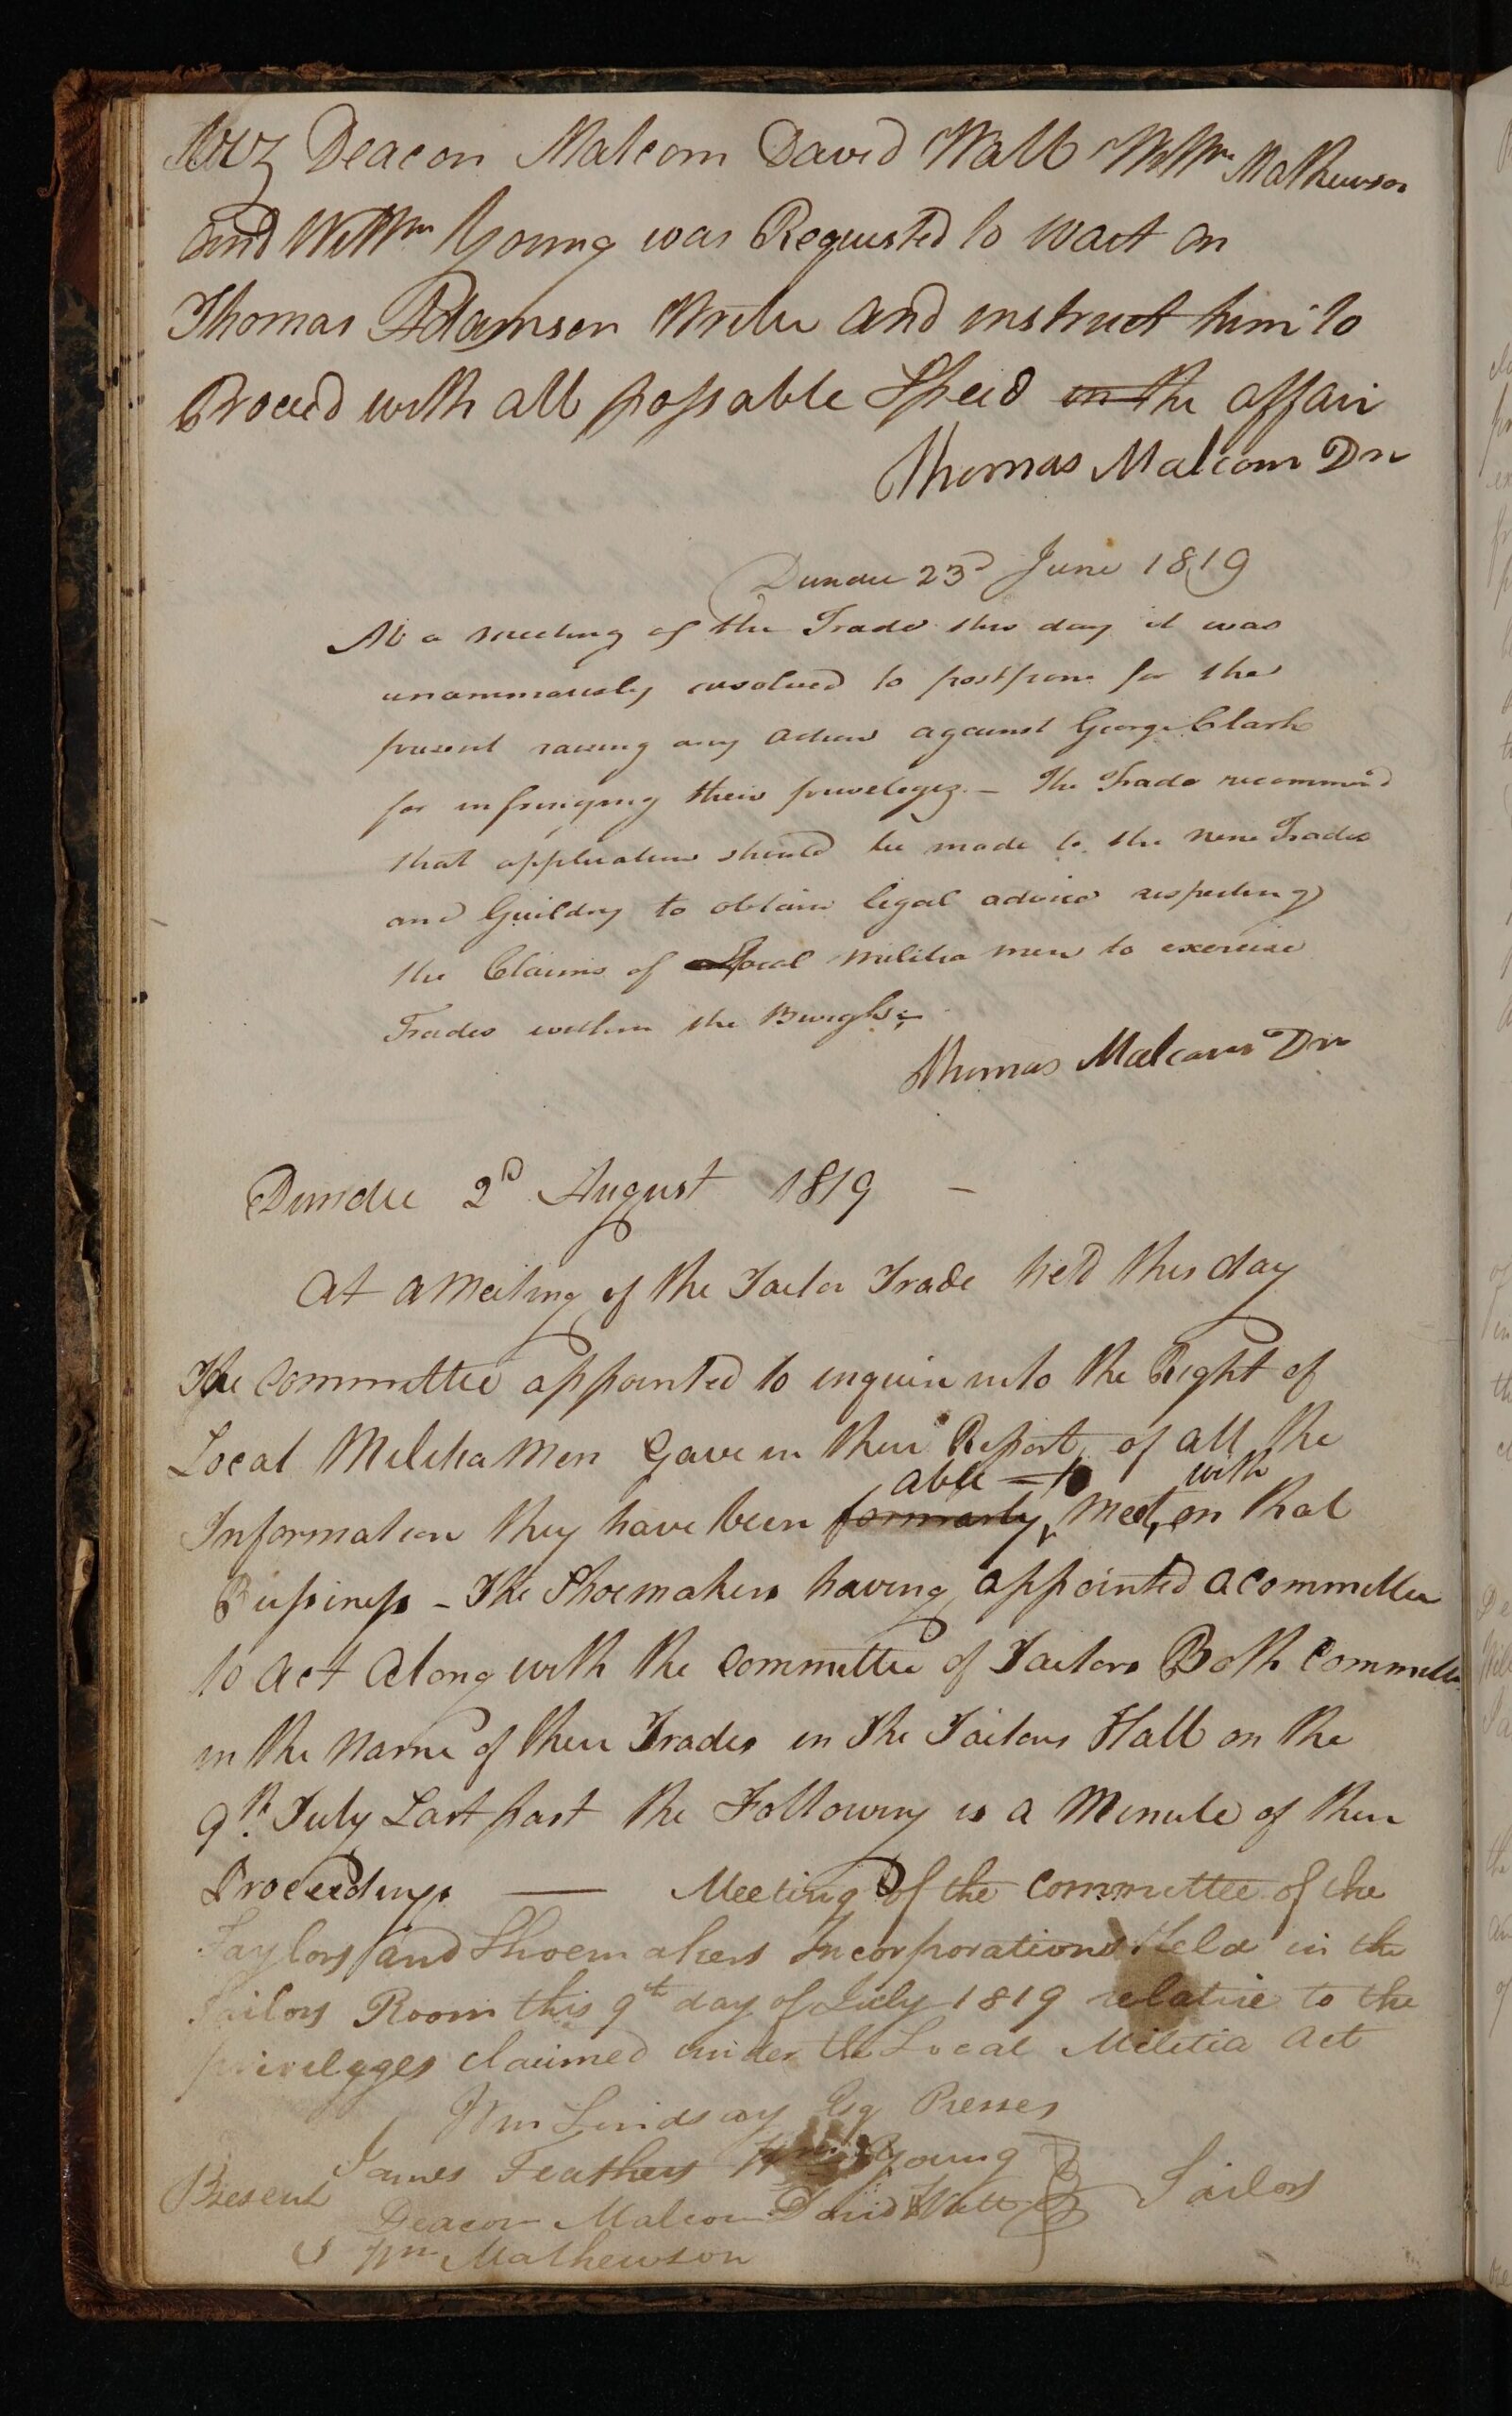 Viz Deacon Malcom David Watt Willm Mathewson
and Willm Young was Requested to wait on
Thomas Adamson Writer and instruct him to
Proceed with all possable Speed in the affair
Thomas Malcom Dn
Dundee 23d June 1819
At a meeting of the Trade this day it was
unanimously resolved to postpone for the
present raising any action against George Clark
for infringing their priveleges. – The Trade recommend
that application should be made to the nine Trades
and Guildry to obtain legal advice respecting
the Claims of Local Militia men to exercise
Trades within the Burgh:–
Thomas Malcom Dn
Dundee 2d August 1819 –
At a Meeting of the Tailor Trade held this day
The Committee appointed to inquire into the Right of
Local Militia Men Gave in their Report, of all the
able to with
Information they have been formarly, Meet, on that
Bussiness – The Shoemakers having appointed a committee
to act along with the Committee of Tailors Both Committee
in the Name of their Trades in The Tailors Hall on the
9th July Last past the Following is a Minute of their
Proceedings — Meeting Of the Committee of the
Taylors and Shoemakers Incorporations Held in the
Tailors Room this 9th day of July 1819 relative to the
privileges claimed under the Local Militia Act
Wm Lindsay Esq Preses
James Feathers Wm Young
Present Tailors
Deacon Malcom David Watt
Wm Mathewson